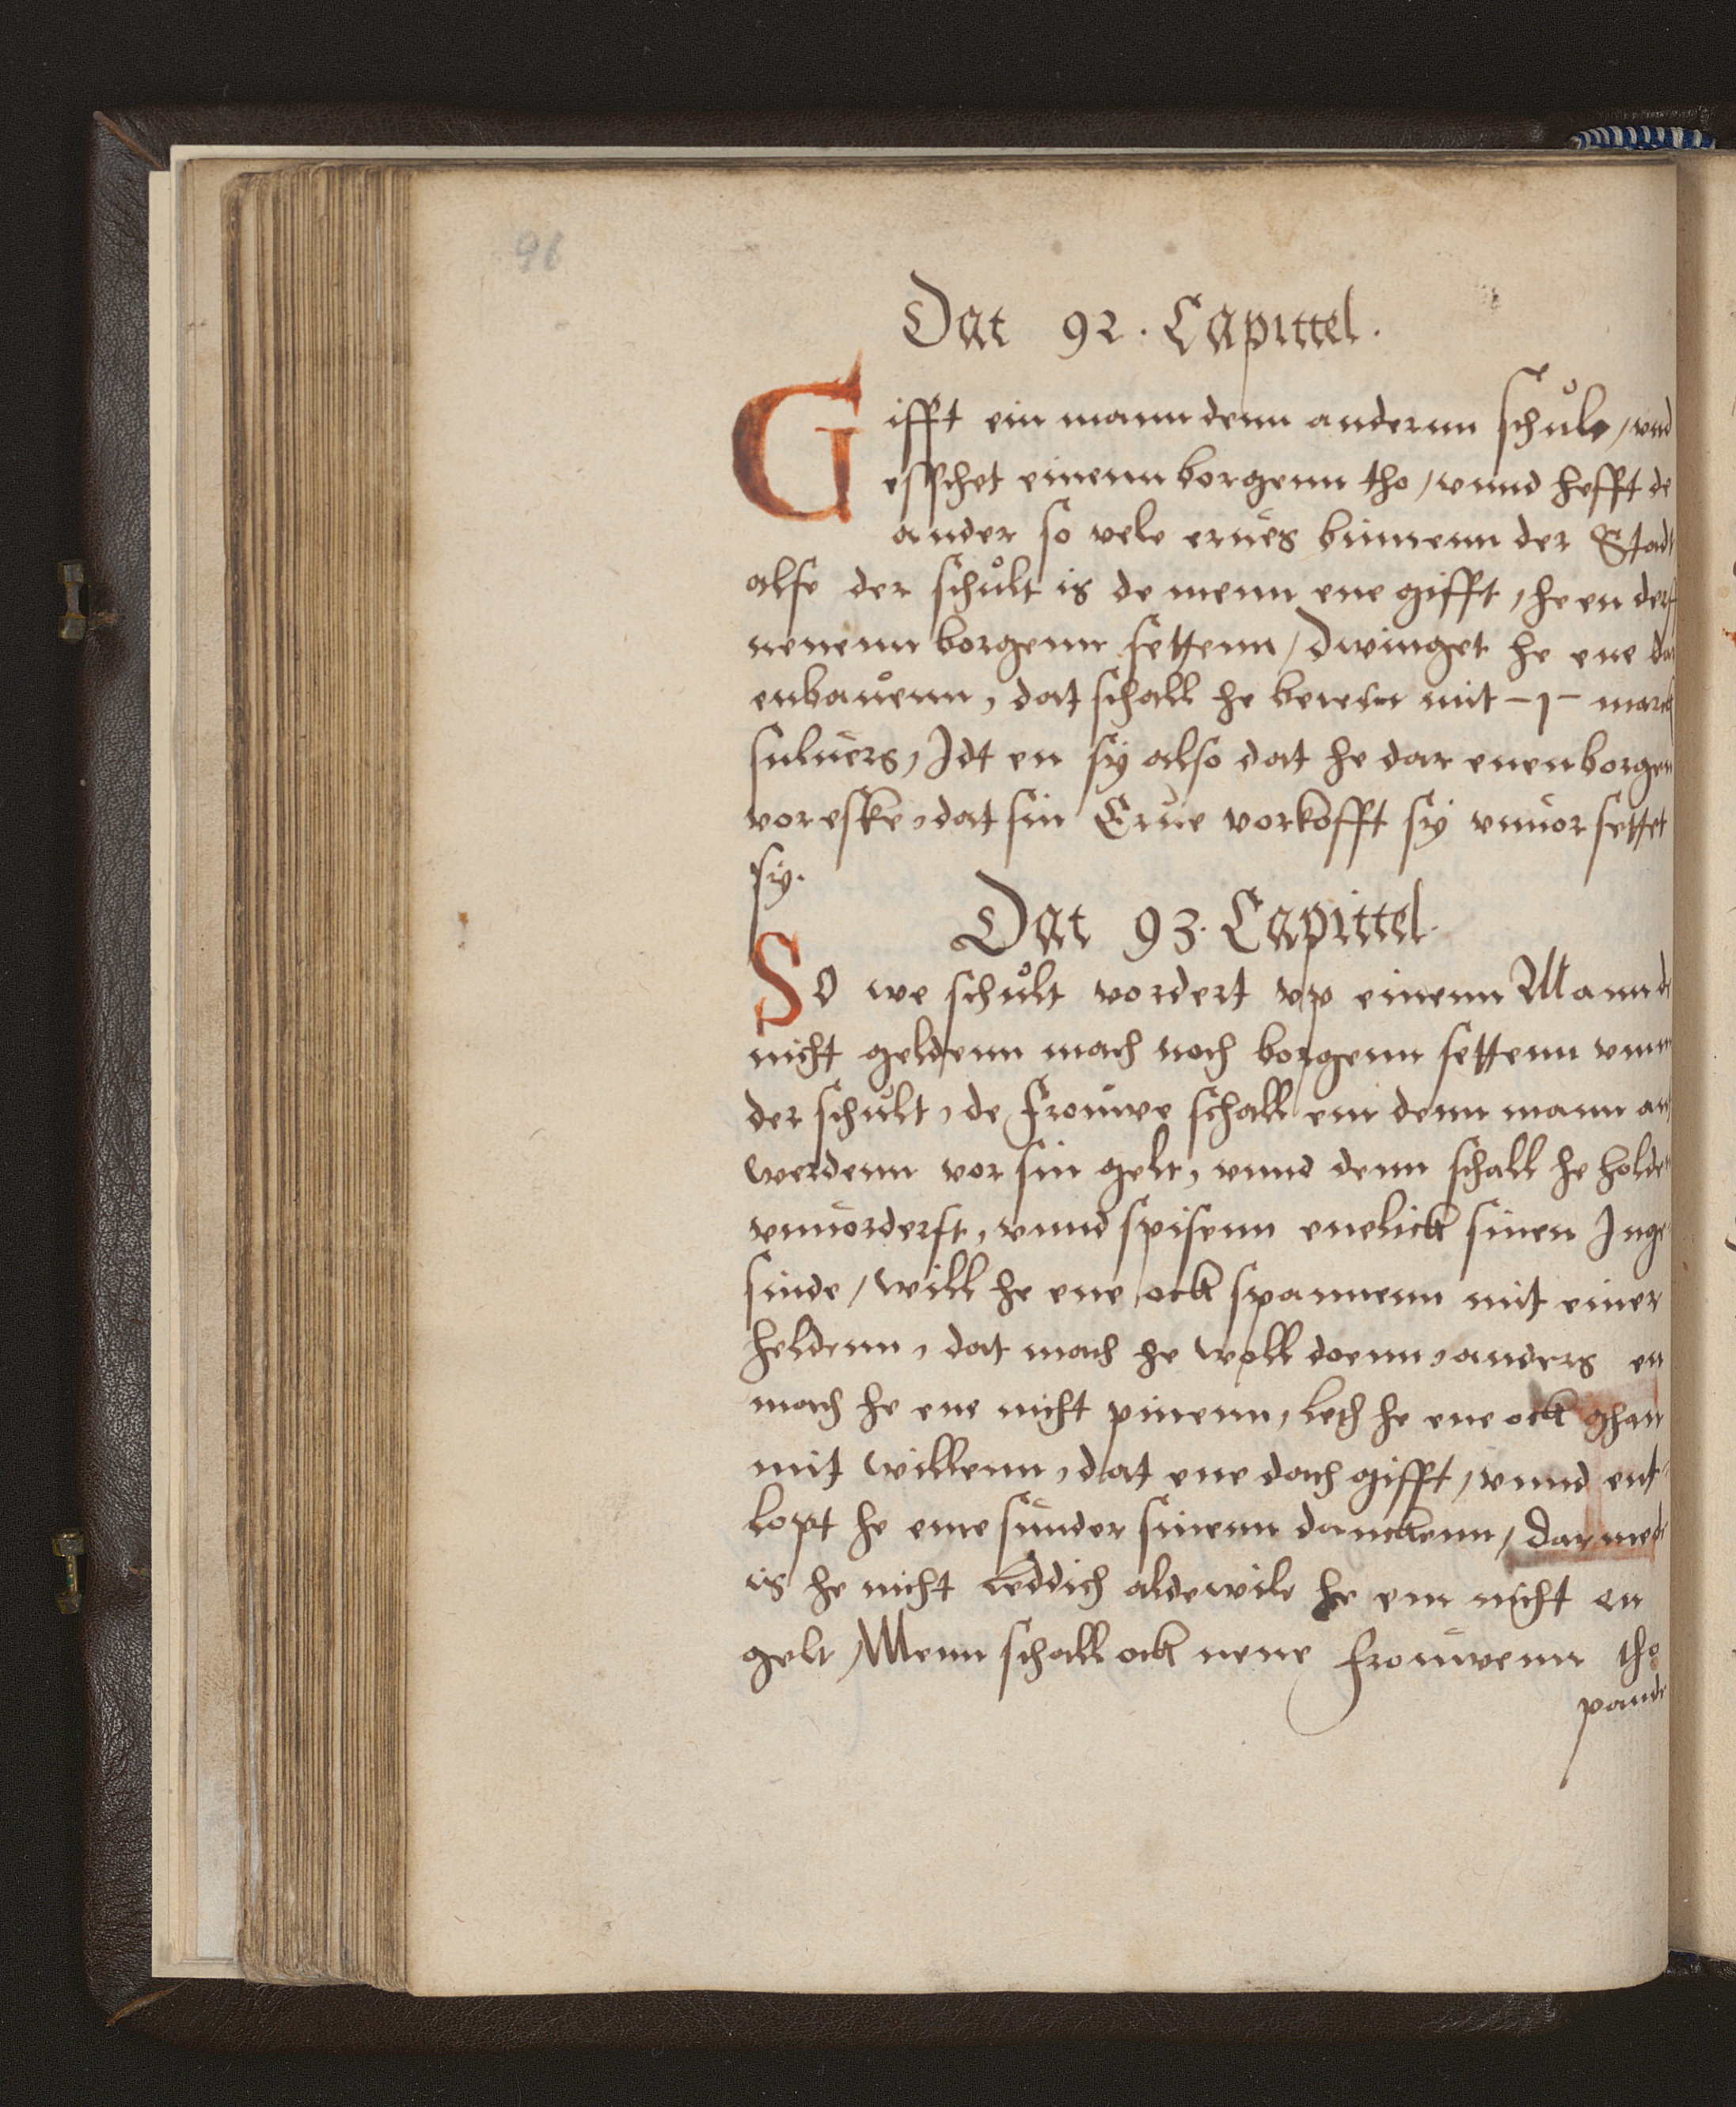 96
Dat 92. Capittel.
Gifft ein mann denn andernn schůlt, vnd
esschet einenn borgenn tho, vnnd hefft de
ander so vele erues binnenn der Stadt
alse der schůlt is de menn ene gifft, he en derf
nenenn borgenn settenn, Dwinget he ene dar
enbauenn, dat schall he beteren mit -1- marck
suluers, Idt en sy also dat he dar enen borgen
vor eske, dat sin Erue vorkofft sy vnuorsettet
sy.
Dat 93. Capittel.
So we schůlt vordert vp einenn Mann de
nicht geldenn mach noch borgenn settenn vmme
der schůlt, de frouwe schall em denn mann ant
werdenn vor sin gelt, vnnd denn schall he holden
vnuorderft, vnnd spisenn enelick sinen Inge
sinde, Will he ene ock spannenn mit einer
heldenn, dat mach he woll doenn, anders en
mach he ene nicht pinenn, leth he ene ock ghan
mit willenn, dat ene doch gifft, vnnd ent-
lopt he eme sunder sinenn danckenn, dar mede
is he nicht leddich aldewile he em nicht en
gelt, Menn schall ock nene frouwenn tho
pande